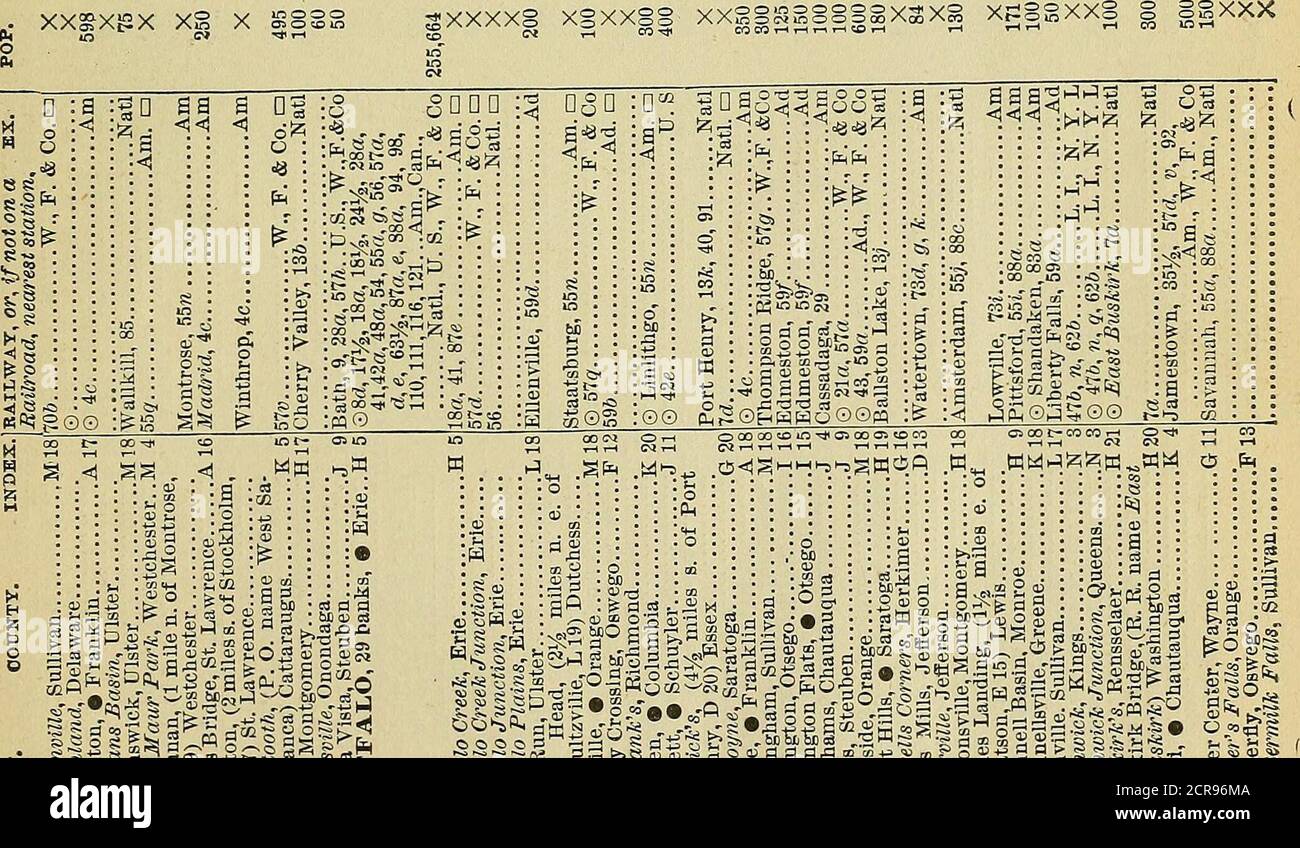 COUNTY. INDEX. RAILWAY, or, if not on a EX. POP.
Railroad, nearest station,
nville, Sullivan M 18 70b W., F. & Co. □ ×
land, Delaware ⊙ ×
ton, ● Franklin A 17 ⊙ 4c Am 598
ans Basin, Ulster ×
nswick, Ulster M 18 Wallkill, 85 Natl 75
Maur Park, Westchester M 4 55q Am. □ ×
nan, (1 mile n. of Montrose,
) Westchester Montrose, 55n Am ×
s Bridge, St. Lawrence A 16 Madrid, 4c Am 250
ton, (2 miles s. of Stockholm,
7) St. Lawrence Winthrop, 4c Am ×
ooth, (P. O. name West Sa-
anca) Cattaraugus K 5 57v W., F. & Co. □ 495
Montgomery H 17 Cherry Valley, 13b Natl 100
sville, Onondaga 60
a Vista, Steuben J 9 Bath, 9, 28a, 57h. U.S., W., F &Co 50
FALO, 29 banks, ● Erie H 5 ⊙8d, 17½, 18a, 18½, 24½, 28a,
41, 42a, 48a, 54, 55a, g, 56, 57a,
d, e, 63½, 87a, e, 88a, 94, 98,
110, 111, 116, 121 Am., Can.,
Natl., U. S., W., F. & Co 255,664
lo Creek, Erie H 5 18a, 41, 87e Am. □ ×
lo Creek Junction, Erie 57d W., F. & Co. □ ×
lo Junction, Erie 56 Natl □ ×
lo Plains, Erie ×
Run, Ulster L 18 Ellenville, 59d Ad 200
Head, (2½ miles n. e. of
ultzville, L 19) Dutchess Staatsburg, 55n Am □ ×
ille, ● Orange M 18 ⊙ 57q W., F & Co 100
y Crossing, Oswego F 12 59b Ad. □ ×
ank's, Richmond ×
en, ● Columbia K 20 ⊙ Linlithgo, 55n Am. □ 300
ett, ● Schuyler J 11 ⊙ 42e U. S 400
ick's, (4½ miles s. of Port
nry, D 20) Essex Port Henry, 13k, 40, 91 Natl ×
oyne, Saratoga G 20 7d Natl. □ ×
e, ● Franklin A 18 ⊙ 4c Am 350
ngham, Sullivan M 18 Thompson Ridge, 57g W., F &Co 300
ngton, Otsego I 16 Edmeston, 59f Ad 125
ngton Flats, ● Otsego I 15 Edmeston, 59f Ad 150
hams, Chautauqua J 4 Cassadaga, 29 Am 100
s, Steuben J 9 ⊙ 21a, 57a W., F. & Co 100
side, Orange M 18 ⊙ 43, 59a Ad., W., F & Co 600
t Hills, ● Saratoga H 19 Ballston Lake, 13j Natl 180
ells Corners, Herkimer G 16 ×
s Mills, Jefferson D 13 Watertown, 73d, g, k Am 84
rville, Jefferson ×
onsville, Montgomery H 18 Amsterdam, 55j, 88c Natl 130
es Landing, (1½ miles e. of
tson, E 15) Lewis Lowville, 73i Am ×
nell Basin, Monroe H 9 Pittsford, 55i, 88a Am 171
nellsville, Greene K 18 ⊙ Shandaken, 83a Am 100
ville, Sullivan L 17 Liberty Falls, 59a Ad 50
nwick, Kings N 3 47b, n, 62b L. I., N Y. L ×
nwick Junction, Queens N 3 ⊙ 47b, n, q, 62b L. I., N Y. L ×
kirk's, Rensselaer H 21 ⊙ East Buskirk, 7a Natl 100
kirk Bridge, (R. R. name East
skirk) Washington H 20 7a Natl 300
i, ● Chautauqua K 4 Jamestown, 35½, 57d, v, 92,
Am., W., F & Co 500
er Center, Wayne G 11 Savannah, 55a, 88a Am., Natl 150
er's Falls, Orange ×
erfly, Oswego F 13 ×
termilk Falls, Sullivan ×
alamy
Image ID: 2CR96MA
www.alamy.com